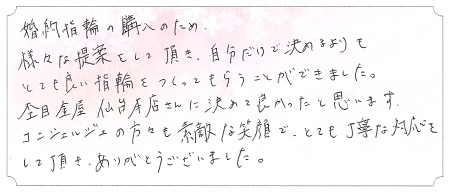 婚約指輪の購入のため、
様々な提案をして頂き、自分だけで決めるよりも
とても良い指輪をつくってもらうことができました。
杢目金屋 仙台本店さんに決めて良かったと思います。
コンシェルジュの方々も素敵な笑顔で、とても丁寧な対応を
して頂き、ありがとうございました。